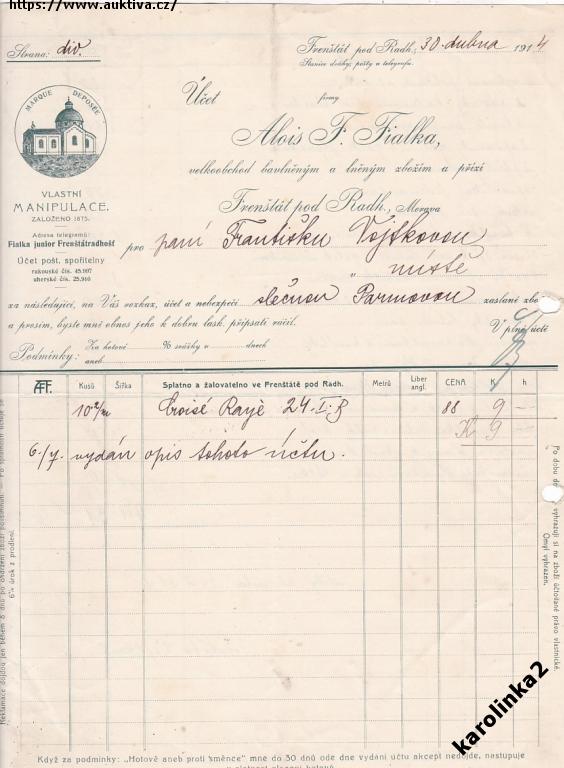 https://www.auktiva.cz/
Strana: div.
Frenštát pod Radh., 30. dubna 1914
Stanice dráhy, pošty a telegrafu.
MARQUE DEPOSÉE
Účet firmy
Alois F. Fialka,
velkoobchod bavlněným a lněným zbožím a přízí
Frenštát pod Radh., Morava
VLASTNÍ
MANIPULACE.
ZALOŽENO 1875.
Adresa telegramů:
Fialka junior Frenštátradhošť
Účet pošt. spořitelny
rakouské čís. 45.997
uherské čís. 25.916
pro paní Františku Vojtkovou
" místě
za následující, na Váš rozkaz, účet a nebezpečí slečnou Parmovou zaslané zboží
a prosím, byste mně obnos jeho k dobru lask. připsati ráčil.
V plné účtě
Podmínky: Za hotové % srážky v dnech
aneb
ÆFF. Kusů Šířka Splatno a žalovatelno ve Frenštátě pod Radh. Metrů Liber angl. CENA K h
10 2/m Croisé Rayé 24. I. B 88 9 —
K 9 —
6./7. vydán opis tohoto účtu.
Reklamace dojdou jen během 8 dnů po obdržení zboží povšimnutí. — Po splatnosti účtuje se
6% úrok z prodlení.
Po dobu vyhrazuji si na zboží účtované právo vlastnické.
Omyl vyhrazen.
Když za podmínky: "Hotově aneb proti směnce" mně do 30 dnů ode dne vydání účtu akcept nedojde, nastupuje
karolinka2